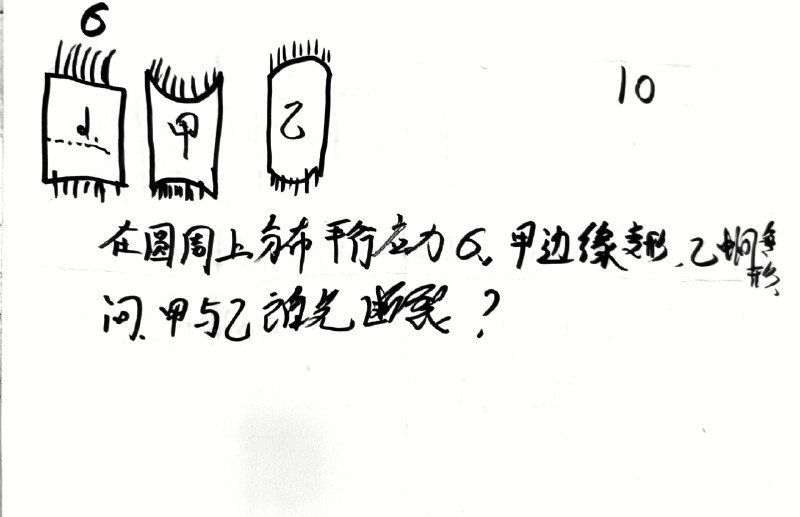 σ
10
d
甲
乙
在圆周上分布平行应力σ。甲边缘变形、乙中间变形、
问、甲与乙谁先断裂?